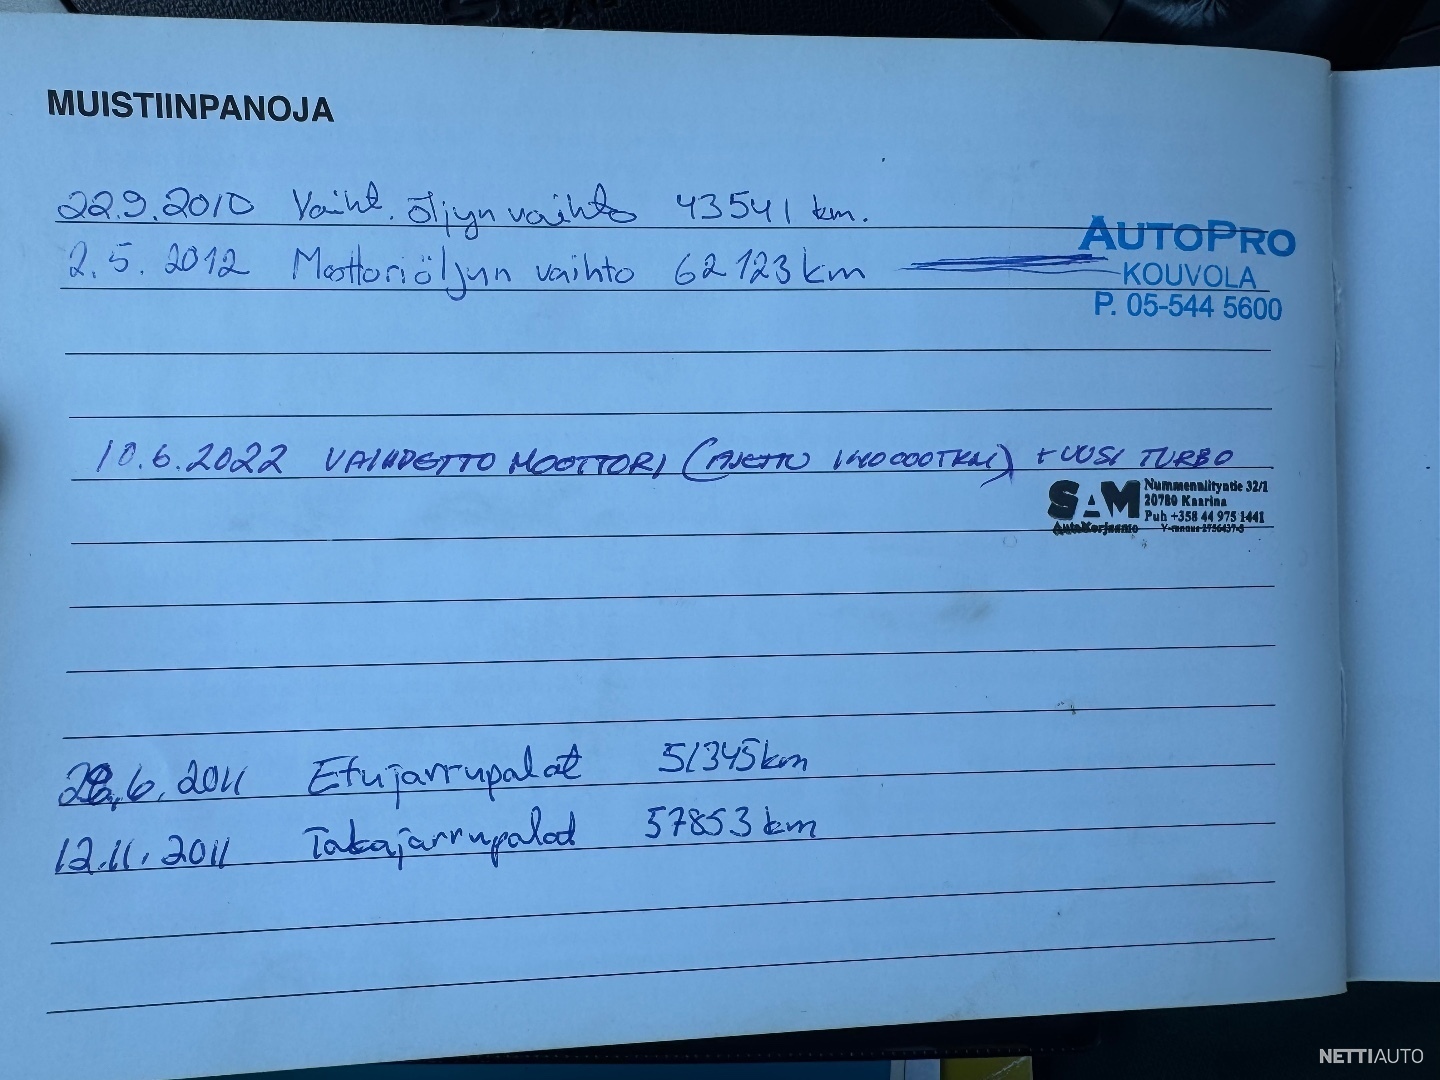 MUISTIINPANOJA
22.9.2010 Vaiht. öljyn vaihto 43541 km.
2.5.2012 Moottoriöljyn vaihto 62123 km
AUTOPRO
KOUVOLA
P. 05-544 5600
10.6.2022 VAIHDETTO MOOTTORI (AJETTU 140000TKM) + UUSI TURBO
SAM
AutoKorjaamo
Nummenniityntie 32/1
20780 Kaarina
Puh +358 44 975 1441
28.6.2011 Etujarrupalat 51345 km
12.11.2011 Takajarrupalat 57853 km
NETTIAUTO